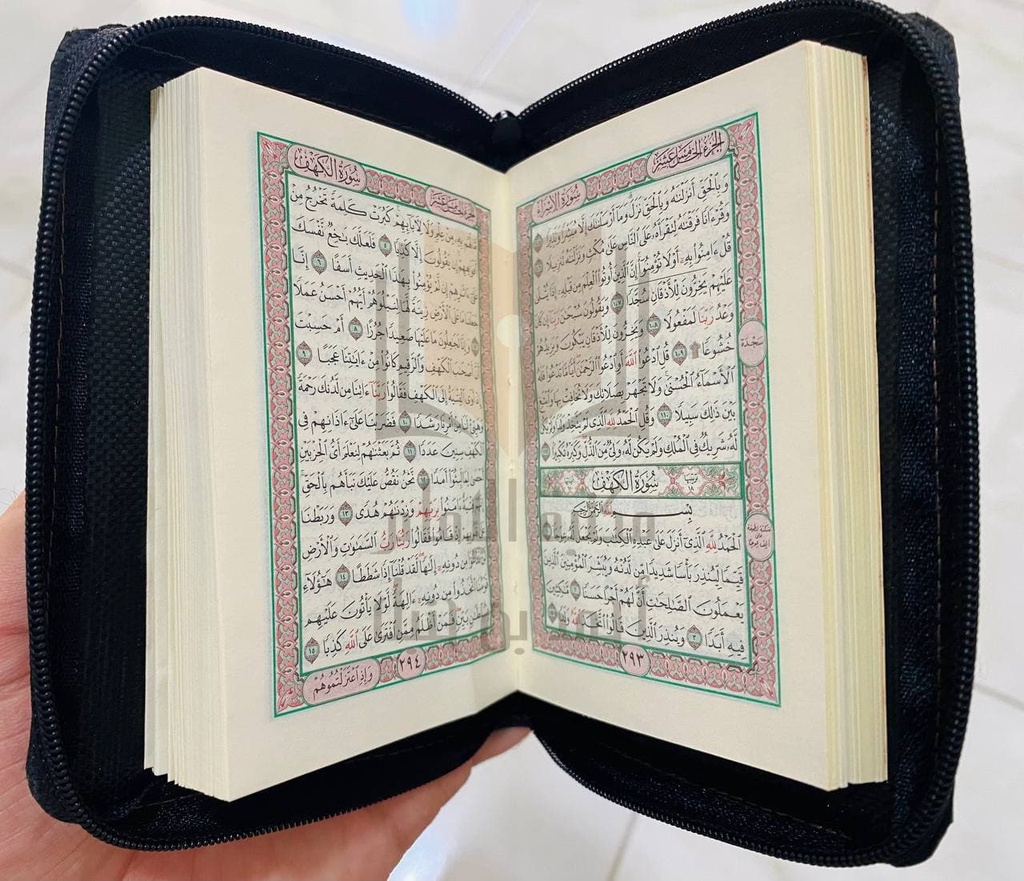 الجزء الخامس عشر
سورة الإسراء
وبالحق أنزلنه وبالحق نزل وما أرسلنك إلا مبشرا ونذيرا ١٠٥
وقرءانا فرقنه لتقرأه على الناس على مكث ونزلنه تنزيلا ١٠٦
قل ءامنوا به أو لا تؤمنوا إن الذين أوتوا العلم من قبله إذا يتلى
عليهم يخرون للأذقان سجدا ١٠٧ ويقولون سبحن ربنا إن كان
وعد ربنا لمفعولا ١٠٨ ويخرون للأذقان يبكون ويزيدهم
خشوعا ۩ ١٠٩ قل ادعوا الله أو ادعوا الرحمن أيا ما تدعوا فله
الأسماء الحسنى ولا تجهر بصلاتك ولا تخافت بها وابتغ
بين ذلك سبيلا ١١٠ وقل الحمد لله الذي لم يتخذ ولدا ولم يكن
له شريك في الملك ولم يكن له ولي من الذل وكبره تكبيرا ١١١
سجدة
سورة الكهف
ترتيبها ١٨
بسم الله الرحمن الرحيم
الحمد لله الذي أنزل على عبده الكتب ولم يجعل له
قيما لينذر بأسا شديدا من لدنه ويبشر المؤمنين الذين
يعملون الصلحت أن لهم أجرا حسنا ٢ مكثين
فيه أبدا ٣ وينذر الذين قالوا اتخذ الله ولدا ٤
٢٩٣
سورة الكهف
الجزء الخامس عشر
لهم به من علم ولا لآبائهم كبرت كلمة تخرج من
أفوههم إن يقولون إلا كذبا ٥ فلعلك بخع نفسك
على ءاثرهم إن لم يؤمنوا بهذا الحديث أسفا ٦ إنا
جعلنا ما على الأرض زينة لها لنبلوهم أيهم أحسن عملا
لجعلون ما عليها صعيدا جرزا ٨ أم حسبت
أن أصحب الكهف والرقيم كانوا من ءايتنا عجبا ٩
إذ أوى الفتية إلى الكهف فقالوا ربنا ءاتنا من لدنك رحمة
وهيئ لنا من أمرنا رشدا ١٠ فضربنا على ءاذانهم في
الكهف سنين عددا ١١ ثم بعثنهم لنعلم أي الحزبين
أحصى لما لبثوا أمدا ١٢ نحن نقص عليك نبأهم بالحق
إنهم فتية ءامنوا بربهم وزدنهم هدى ١٣ وربطنا
على قلوبهم إذ قاموا فقالوا ربنا رب السموت والأرض
لن ندعوا من دونه إلها لقد قلنا إذا شططا ١٤ هؤلاء
قومنا اتخذوا من دونه ءالهة لولا يأتون عليهم
بسلطن بين فمن أظلم ممن افترى على الله كذبا ١٥
٢٩٤
وإذ اعتزلتموهم